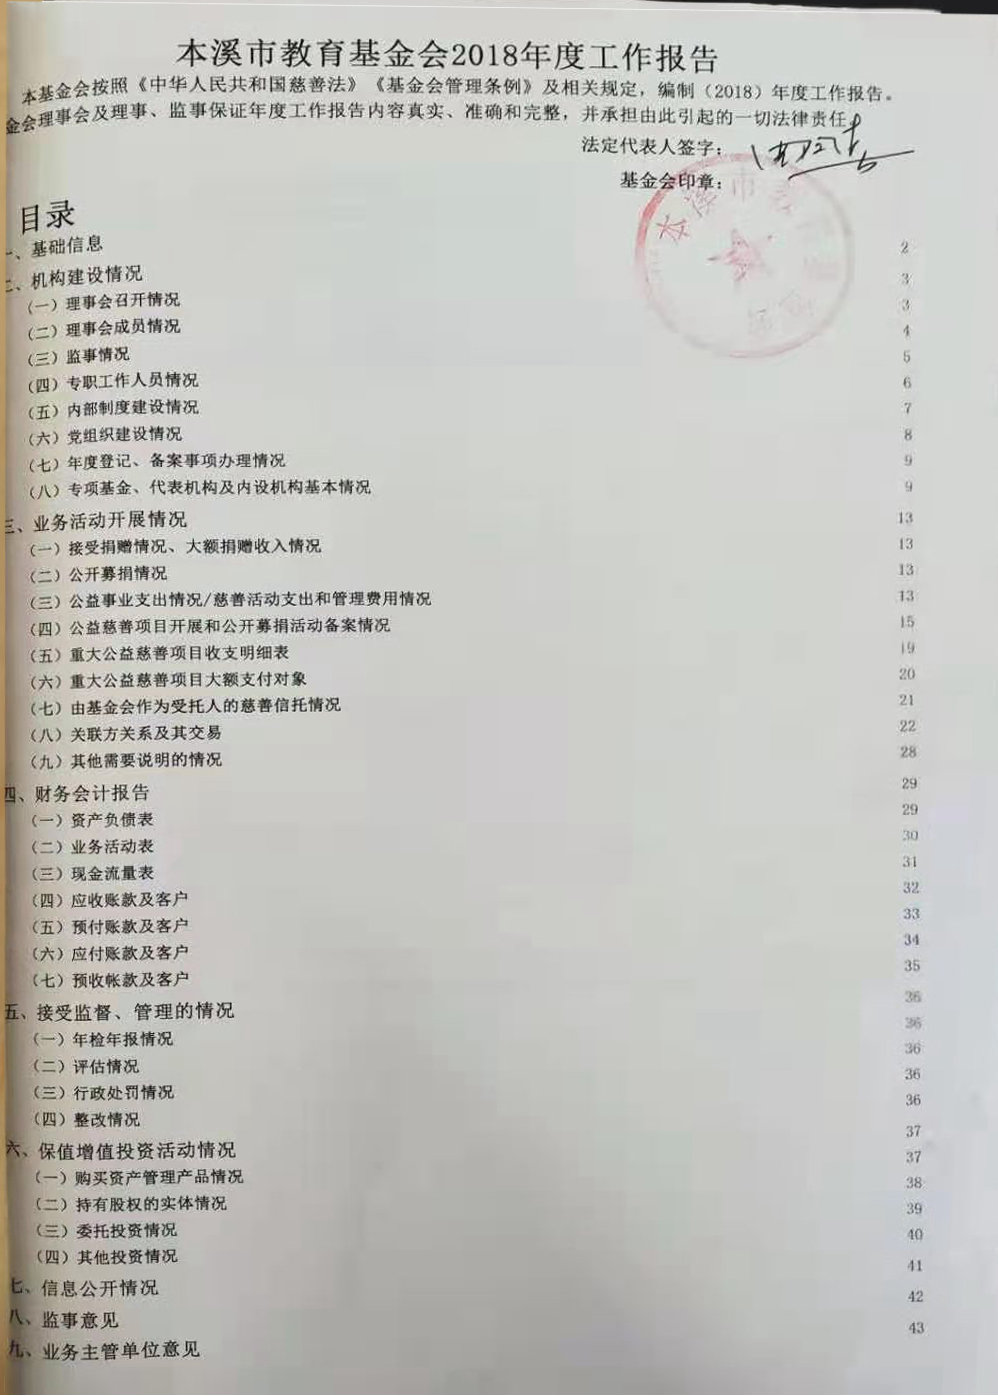 本溪市教育基金会2018年度工作报告
本基金会按照《中华人民共和国慈善法》《基金会管理条例》及相关规定，编制（2018）年度工作报告。
金会理事会及理事、监事保证年度工作报告内容真实、准确和完整，并承担由此引起的一切法律责任。
法定代表人签字：
基金会印章：
本溪市教育
目录
一、基础信息 2
二、机构建设情况 3
（一）理事会召开情况 3
（二）理事会成员情况 4
（三）监事情况 5
（四）专职工作人员情况 6
（五）内部制度建设情况 7
（六）党组织建设情况 8
（七）年度登记、备案事项办理情况 9
（八）专项基金、代表机构及内设机构基本情况 9
三、业务活动开展情况 13
（一）接受捐赠情况、大额捐赠收入情况 13
（二）公开募捐情况 13
（三）公益事业支出情况/慈善活动支出和管理费用情况 13
（四）公益慈善项目开展和公开募捐活动备案情况 15
（五）重大公益慈善项目收支明细表 19
（六）重大公益慈善项目大额支付对象 20
（七）由基金会作为受托人的慈善信托情况 21
（八）关联方关系及其交易 22
（九）其他需要说明的情况 28
四、财务会计报告 29
（一）资产负债表 29
（二）业务活动表 30
（三）现金流量表 31
（四）应收账款及客户 32
（五）预付账款及客户 33
（六）应付账款及客户 34
（七）预收帐款及客户 35
五、接受监督、管理的情况 36
（一）年检年报情况 36
（二）评估情况 36
（三）行政处罚情况 36
（四）整改情况 36
六、保值增值投资活动情况 37
（一）购买资产管理产品情况 37
（二）持有股权的实体情况 38
（三）委托投资情况 39
（四）其他投资情况 40
七、信息公开情况 41
八、监事意见 42
九、业务主管单位意见 43